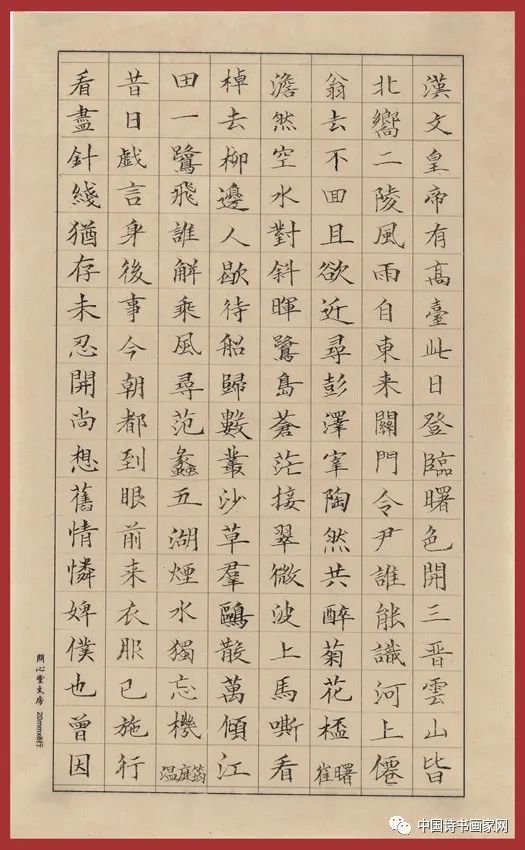 漢文皇帝有高臺此日登臨曙色開三晋雲山皆
北嚮二陵風雨自東来關門令尹誰能識河上僊
翁去不回且欲近尋彭澤宰陶然共醉菊花桮崔曙
澹然空水對斜暉鷺島蒼茫接翠微波上馬嘶看
棹去柳邊人歇待船歸數叢沙草羣鷗散萬傾江
田一鷺飛誰解乘風尋范蠡五湖煙水獨忘機温庭筠
昔日戲言身後事今朝都到眼前来衣服已施行
看盡針綫猶存未忍開尚想舊情憐婢僕也曾因
問心堂文房 20mmx8行
中国诗书画家网